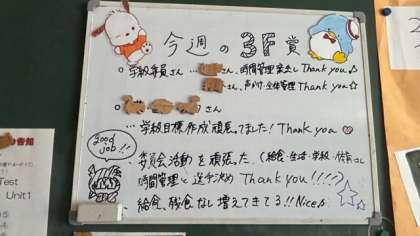 今週の3F賞
○ 学級委員さん … さん、時間管理楽しく Thank you♪
さん、声かけ・全体管理 Thank you☆
○ さん
… 学級目標作成頑張ってました! Thank you
good job!!
○ 委員会活動を頑張った(給食・生活・学級・体育さん
時間管理と選手決め Thank you!!!!
○ 給食、残食なし増えてきてる!! Nice♪
告知
Test
Unit1